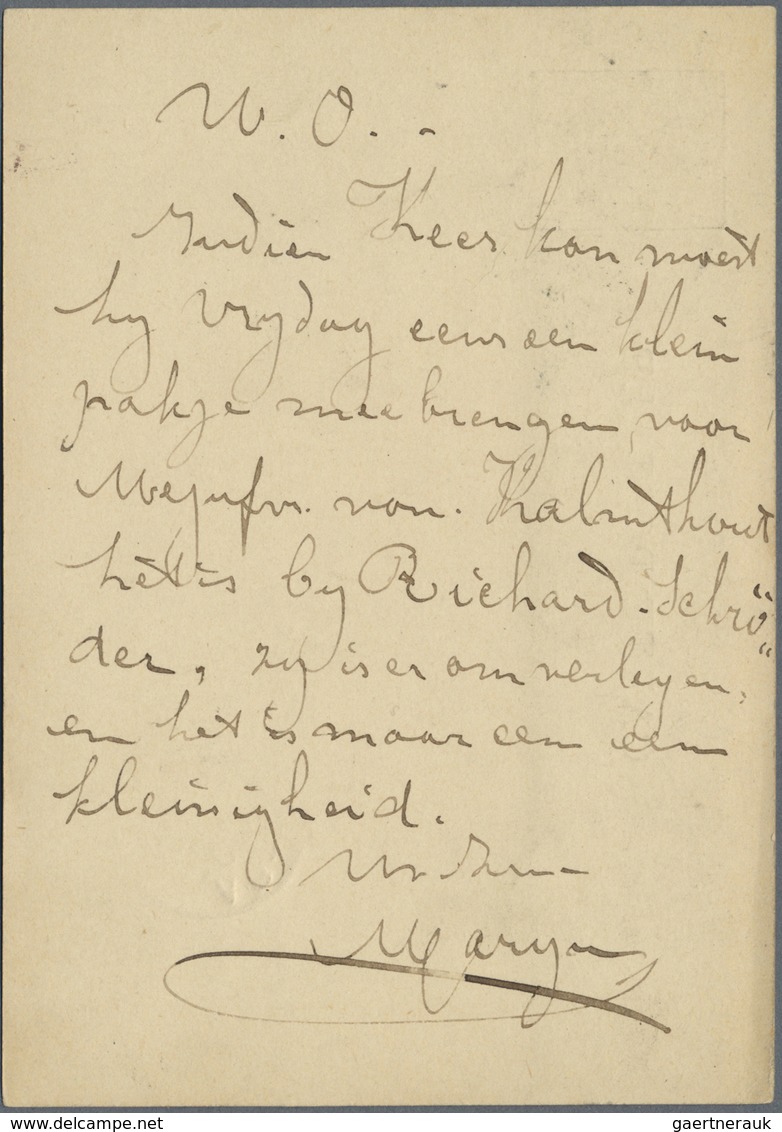 W. O. -
Indien Kees kan moest
hy Vrydag eens een klein
pakje meebrengen voor
Mejufvr. van. Kalmthout
het is by Richard. Schrö"
der, zy is er om verlegen,
en het is maar een een
kleinigheid.
Maryn
delcampe.net
gaertnerauk